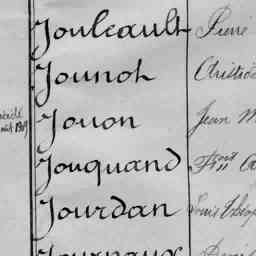 Jouleault Pierre
Jounot Aristide
Jouon Jean M
Jouquand
Jourdan Louis
Journaux